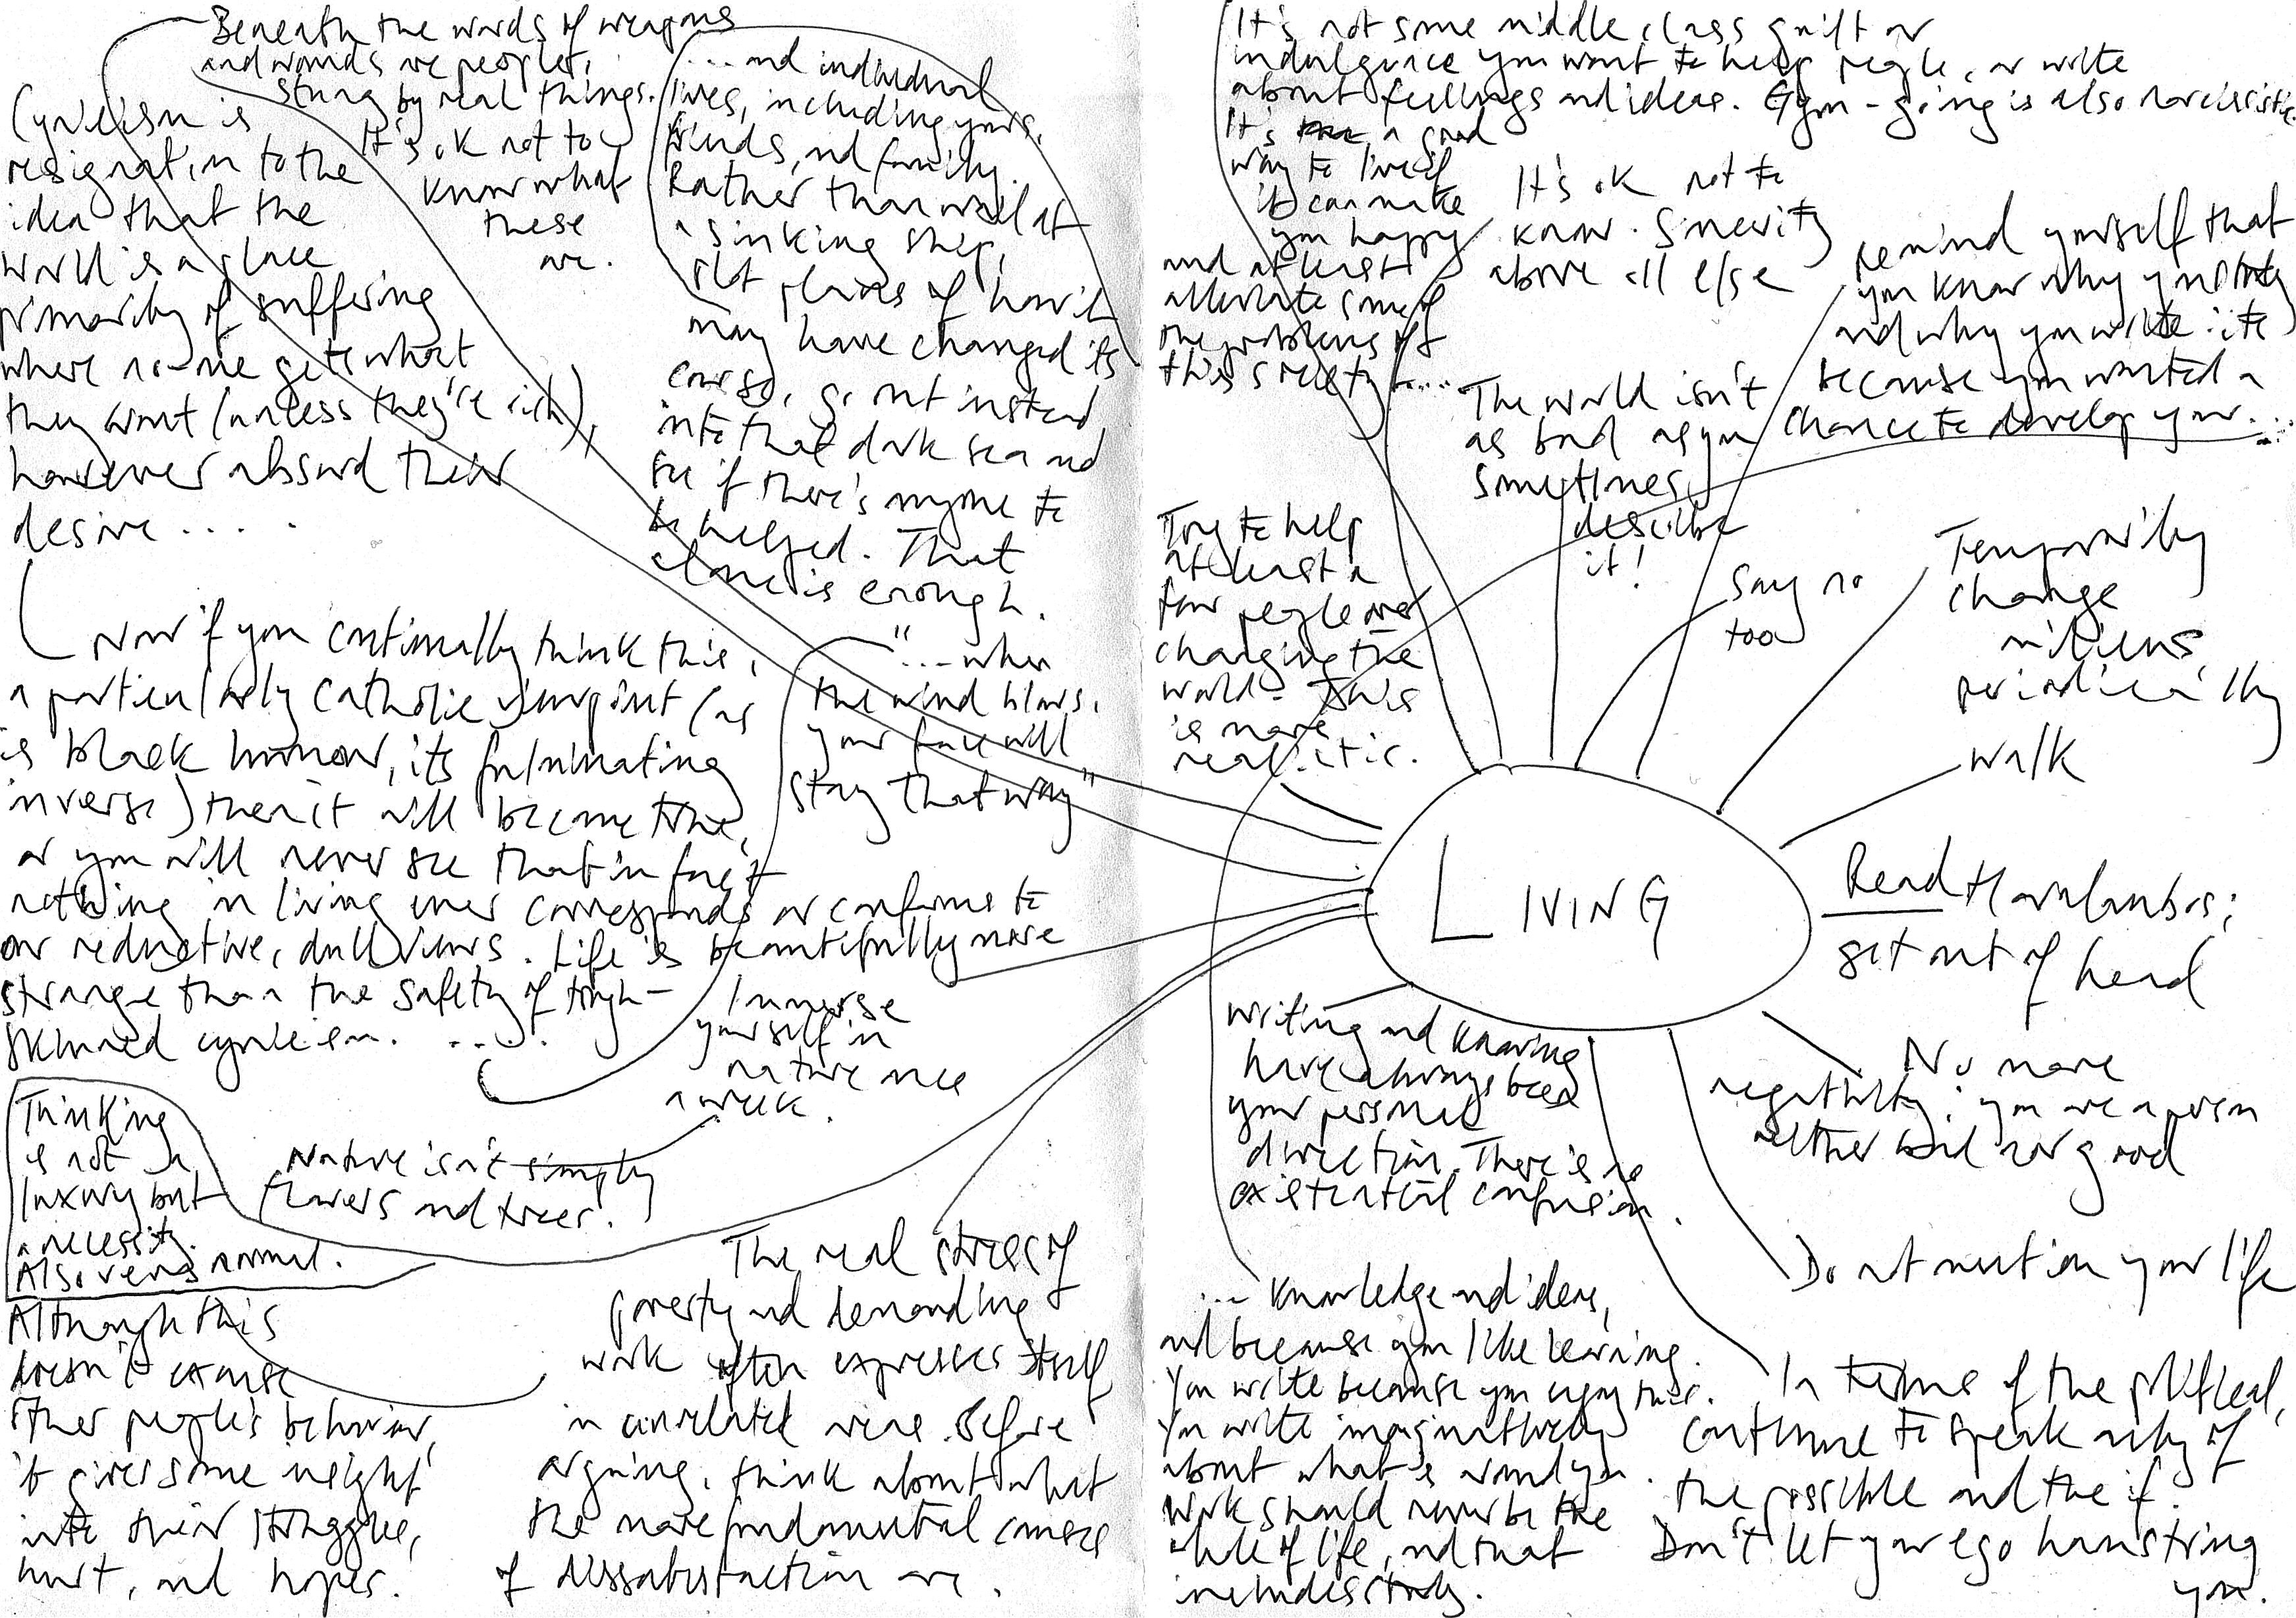 Beneath the words of weapons
and wounds are people,
stung by real things.
It's ok not to
know what
these
are.
Cynicism is
resignation to the
idea that the
world is a place
primarily of suffering
where no-one gets what
they want (unless they're rich),
however absurd their
desire....
Now if you continually think this,
a particularly Catholic viewpoint (as
is black humour, its fulminating
inverse) then it will become true,
or you will never see that in fact
nothing in living ever corresponds or conforms to
our reductive, dull views. Life is beautifully more
strange than the safety of tough-
skinned cynicism. ....
"...when
the wind blows,
your face will
stay that way"
...and individual
lives, including yours,
friends, and family.
Rather than wail at
a sinking ship,
plot places of how it
may have changed its
course, go out instead
into that dark sea and
see if there's anyone to
be helped. That
alone is enough.
Immerse
yourself in
nature once
a week.
Nature isn't simply
flowers and trees.
Thinking
is not a
luxury but
a necessity.
Also very normal.
The real stress of
poverty and demanding
work often expresses itself
in unrelated ways. Before
arguing, think about what
the more fundamental causes
of dissatisfaction are.
Although this
doesn't excuse
other people's behaviour,
it gives some insight
into their struggles,
hurt, and hopes.
It's not some middle class guilt or
indulgence you want to help people, or write
about feelings and ideas. Gym-going is also narcissistic.
It's a good
way to live if
it can make
you happy
and at least
alleviate some of
the problems of
this society....
It's ok not to
know. Sincerity
above all else
The world isn't
as bad as you
sometimes
describe
it!
Remind yourself that
you know why you study
and why you write: it's
because you wanted a
chance to develop your...
... knowledge and ideas,
and because you like learning.
You write because you enjoy this.
You write imaginatively
about what's around you.
Work should never be the
whole of life, and that
includes study.
Try to help
at least a
few people over
changing the
world. This
is more
realistic.
Say no
too
Temporarily
change
milieus
periodically
walk
Read
get out of head
No more
negativity; you are a person
neither bad nor good
Do not mention your life
In terms of the political,
continue to speak only of
the possible and the if.
Don't let your ego hamstring
you.
Writing and knowing
have always been
your personal
direction. There is no
existential confusion.
LIVING